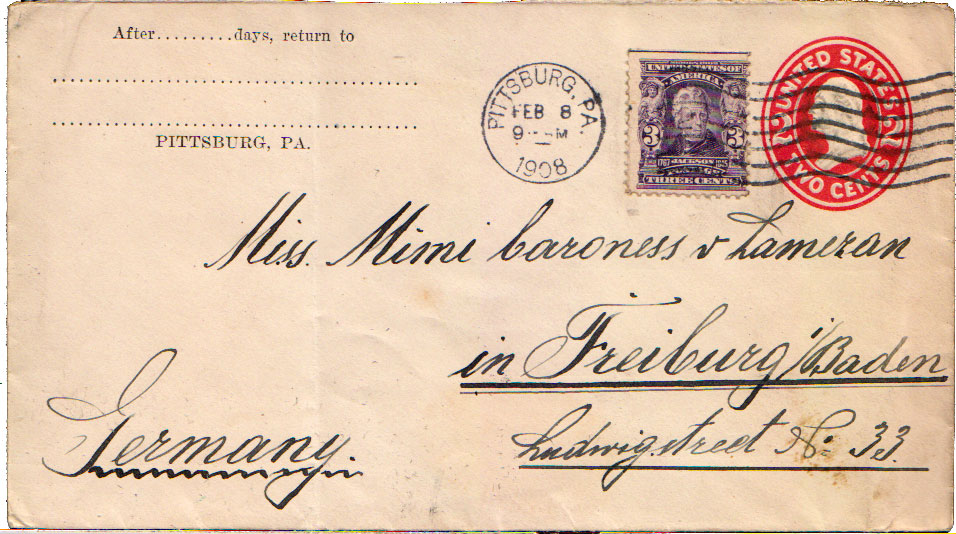 After.........days, return to
PITTSBURG, PA.
PITTSBURG, PA.
FEB 8
9 M
1908
UNITED STATES OF
AMERICA
3 3
1767 JACKSON 1845
POSTAGE
THREE CENTS
UNITED STATES
2 2
TWO CENTS
Miss. Mimi baroness v Lamezan
in Freiburg i/Baden
Ludwigstreet No: 33.
Germany.